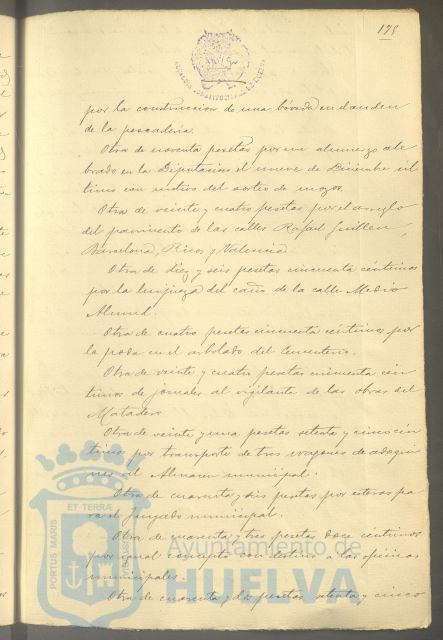 178
por la construccion de una bóveda en el anden
de la pescaderia.
Otra de noventa pesetas por un almuerzo cele
brado en la Diputacion el nueve de Diciembre úl
timo con motivo del sorteo de mozos.
Otra de veinte y cuatro pesetas por el arreglo
del pavimento de las calles Rafael Guillen,
Barcelona, Ricos y Valencia.
Otra de diez y seis pesetas cincuenta céntimos
por la limpieza del caño de la calle Medio
Almud.
Otra de cuatro pesetas cincuenta céntimos por
la poda en el arbolado del Cementerio.
Otra de veinte y cuatro pesetas cincuenta cén
timos de jornales al vigilante de las obras del
Matadero
Otra de veinte y una pesetas setenta y cinco cén
timos por transporte de tres wagones de adoqui
nes al Almacen municipal.
Otra de cuarenta y seis pesetas por esteras pa
ra el Juzgado municipal.
Otra de cuarenta y tres pesetas doce céntimos
por igual concepto con destino a las oficinas
municipales.
Otra de cuarenta y dos pesetas setenta y cinco
PORTUS MARIS ET TERRÆ CUSTODIA
Ayuntamiento de
HUELVA